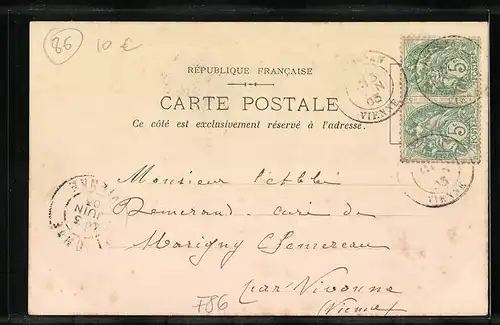 86
10 €
RÉPUBLIQUE FRANÇAISE
CARTE POSTALE
Ce côté est exclusivement réservé à l'adresse.
5
5
VIENNE
VIENNE
Monsieur l'abbé
curé de
Marigny Chemereau
par Vivonne
(Vienne)
F86
JUIN